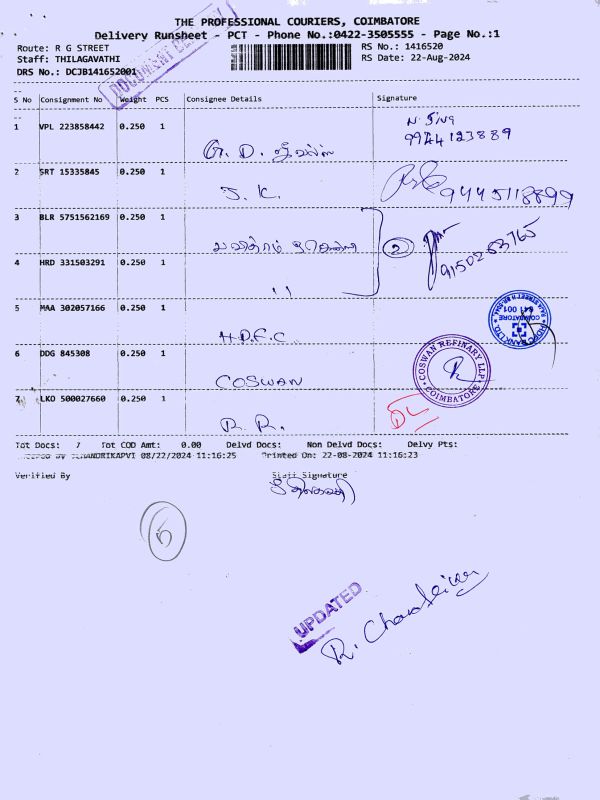 THE PROFESSIONAL COURIERS, COIMBATORE
Delivery Runsheet - PCT - Phone No.:0422-3505555 - Page No.:1
Route: R G STREET
Staff: THILAGAVATHI
DRS No.: DCJB141652001
RS No.: 1416520
RS Date: 22-Aug-2024
S No Consignment No Weight PCS Consignee Details Signature
1 VPL 223858442 0.250 1 G. D. N. Siva 9944123889
2 SRT 15335845 0.250 1 J. K. 9445118899
3 BLR 5751562169 0.250 1 2 9150283765
4 HRD 331503291 0.250 1 ''
5 MAA 302057166 0.250 1 H.D.F.C HDFC BANK LTD. COIMBATORE 641 001
6 DDG 845308 0.250 1 COSWAN COSWAN REFINARY LLP COIMBATORE
7 LKO 500027660 0.250 1 R. R. DL
Tot Docs: 7 Tot COD Amt: 0.00 Delvd Docs: Non Delvd Docs: Delvy Pts:
08/22/2024 11:16:25 Printed On: 22-08-2024 11:16:23
Verified By Staff Signature
5
UPDATED